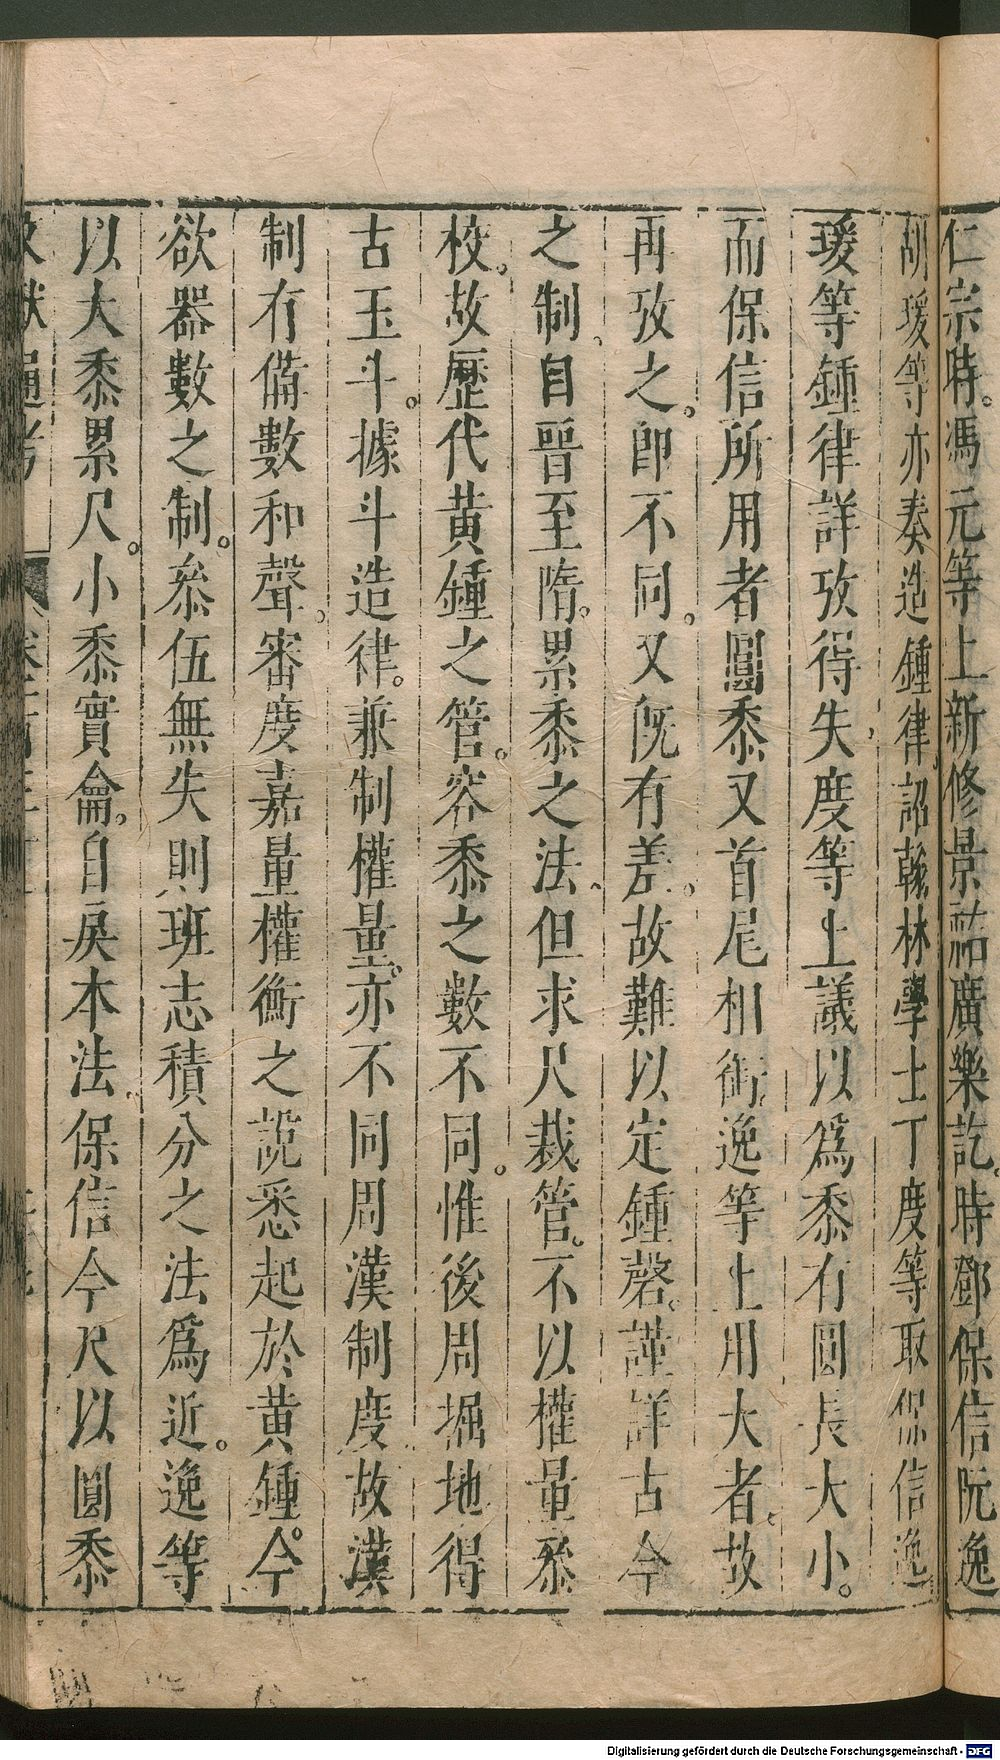 仁宗時。馮元等上新修景祐廣樂記。時鄧保信阮逸
胡瑗等亦奏造鍾律詔翰林學士丁度等取保信逸
瑗等鍾律詳攷得失度等上議以爲黍有圓長大小。
而保信所用者圓黍又首尾相銜逸等止用大者故
再攷之。即不同。又既有差。故難以定鍾磬。謹詳古今
之制自晉至隋。累黍之法。但求尺裁管。不以權量叅
校。故歷代黄鍾之管。容黍之數不同。惟後周掘地得
古玉斗。據斗造律。兼制權量。亦不同周漢制度故漢
制有備數和聲。審度嘉量權衡之說悉起於黄鍾。今
欲器數之制。叅伍無失則班志積分之法爲近。逸等
以大黍累尺。小黍實龠。自戾本法。保信今尺以圓黍
文獻通考
Digitalisierung gefördert durch die Deutsche Forschungsgemeinschaft - DFG